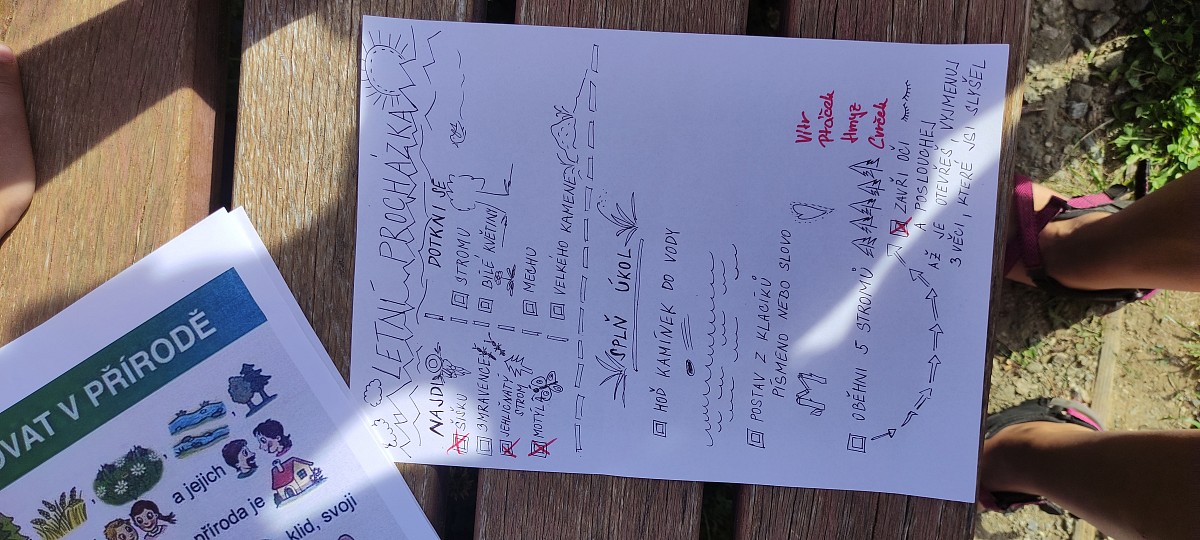 LETNÍ PROCHÁZKA
NAJDI
ŠIŠKU
3 MRAVENCE
JEHLIČNATÝ
STROM
MOTÝL
DOTKNI SE
STROMU
BÍLÉ KVĚTINY
MECHU
VELKÉHO KAMENE
SPLŇ ÚKOL
HOĎ KAMÍNEK DO VODY
POSTAV Z KLACÍKŮ
PÍSMENO NEBO SLOVO
OBĚHNI 5 STROMŮ
Vítr
Ptáček
Hmyz
Cvrček
ZAVŘI OČI
A POSLOUCHEJ
AŽ JE OTEVŘEŠ, VYJMENUJ
3 VĚCI, KTERÉ JSI SLYŠEL
OVAT V PŘÍRODĚ
a jejich
příroda je
klid, svoji